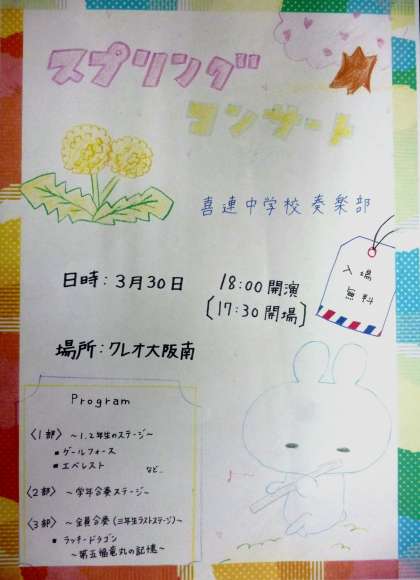 スプリング
コンサート
喜連中学校奏楽部
入場
無料
日時：3月30日 18:00開演
〔17:30開場〕
場所：クレオ大阪南
Program
〈1部〉 〜1.2年生のステージ〜
▪ゲールフォース
▪エベレスト など…
〈2部〉 〜学年合奏ステージ〜
〈3部〉 〜全員合奏（三年生ラストステージ）〜
▪ラッキードラゴン
〜第五福竜丸の記憶〜